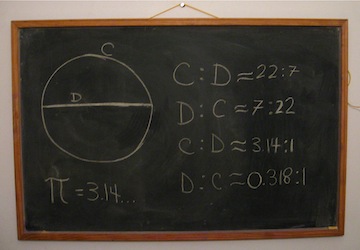 C
D
π = 3.14...
C : D ≈ 22 : 7
D : C ≈ 7 : 22
C : D ≈ 3.14 : 1
D : C ≈ 0.318 : 1